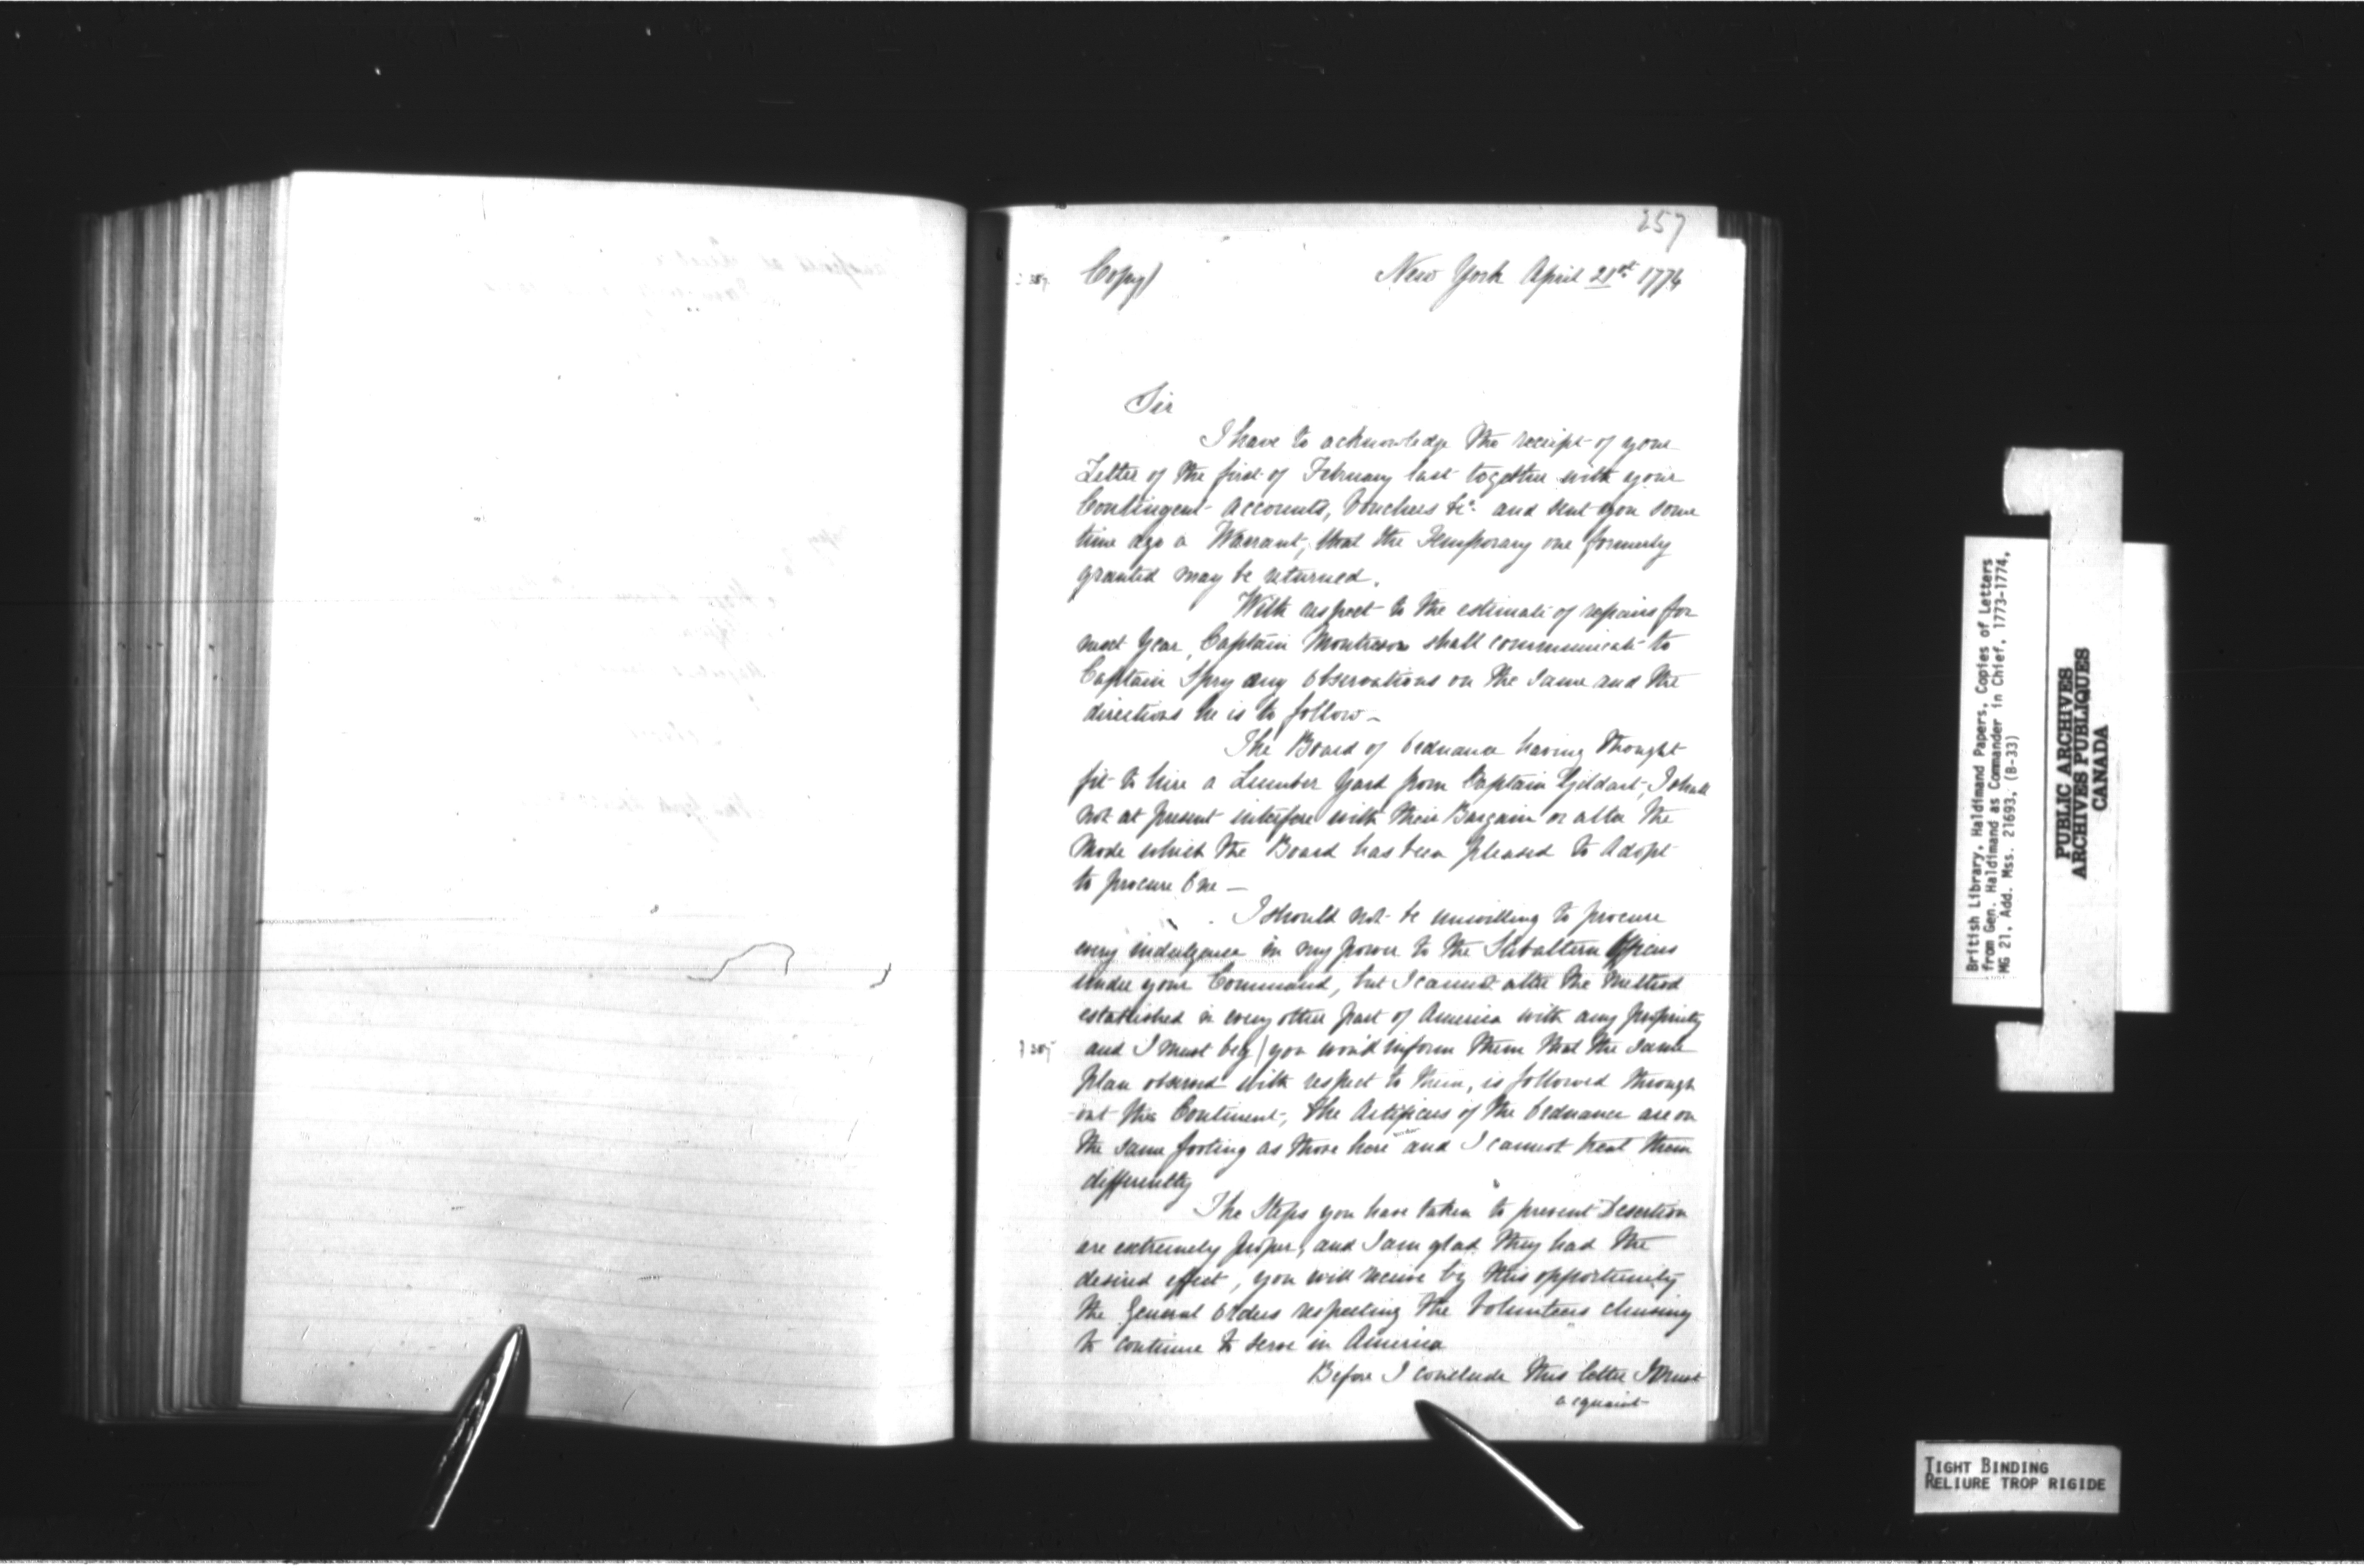 257
Copy)
New York April 21st 1774
Sir
I have to acknowledge the receipt of your
Letter of the first of February last together with your
Contingent Accounts, Vouchers &c. and sent you some
time ago a Warrant, that the Temporary one formerly
granted may be returned.
With respect to the estimate of repairs for
next Year, Captain Montresor shall communicate to
Captain Spry any observations on the same and the
directions he is to follow –
The Board of Ordnance having thought
fit to hire a Lumber Yard from Captain Gildart, I shall
not at present interfere with their Bargain or alter the
Mode which the Board has been pleased to Adopt
to procure One –
I should not be unwilling to procure
every indulgence in my power to the Subaltern Officers
under your Command, but I cannot alter the method
established in every other part of America with any propriety
and I must beg / you would inform them that the same
plan observed with respect to them, is followed through
out this Continent, the Artificers of the Ordnance are on
the same footing as those here and I cannot treat them
differently
The Steps you have taken to prevent Desertion
are extremely proper, and I am glad they had the
desired effect, you will receive by this opportunity
the General Orders respecting the Volunteers chusing
to continue to serve in America
Before I conclude this letter I must
acquaint
British Library, Haldimand Papers, Copies of Letters
from Gen. Haldimand as Commander in Chief, 1773-1774,
MG 21, Add. Mss. 21693, (B-33)
PUBLIC ARCHIVES
ARCHIVES PUBLIQUES
CANADA
TIGHT BINDING
RELIURE TROP RIGIDE